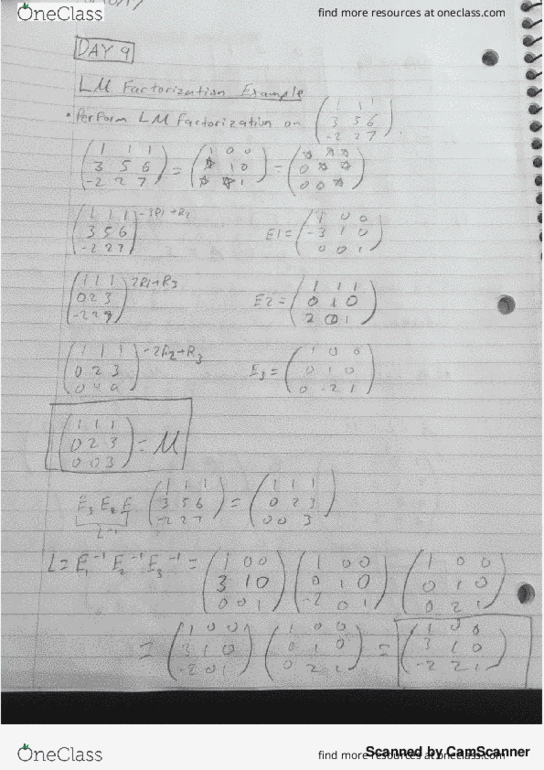 OneClass
find more resources at oneclass.com
DAY 9
LM Factorization Example
• Perform LM Factorization on (1 1 1
3 5 6
-2 2 7).
(1 1 1
3 5 6
-2 2 7) = (1 0 0
☆ 1 0
☆ ☆ 1) - (☆ ☆ ☆
0 ☆ ☆
0 0 ☆)
(1 1 1
3 5 6
-2 2 7) -3R1+R2
E1 = (1 0 0
-3 1 0
0 0 1)
(1 1 1
0 2 3
-2 2 7) 2R1+R3
E2 = (1 1 1
0 1 0
2 0 1)
(1 1 1
0 2 3
0 4 9) -2R2+R3
E3 = (1 0 0
0 1 0
0 -2 1)
(1 1 1
0 2 3
0 0 3) = M
E3 E2 E (1 1 1
3 5 6
-2 2 7) = (1 1 1
0 2 3
0 0 3)
L-1
L = E1-1 E2-1 E3-1 = (1 0 0
3 1 0
0 0 1) (1 0 0
0 1 0
-2 0 1) (1 0 0
0 1 0
0 2 1)
= (1 0 0
3 1 0
-2 0 1) (1 0 0
0 1 0
0 2 1) = (1 0 0
3 1 0
-2 2 1)
OneClass
find more resources at oneclass.com
Scanned by CamScanner